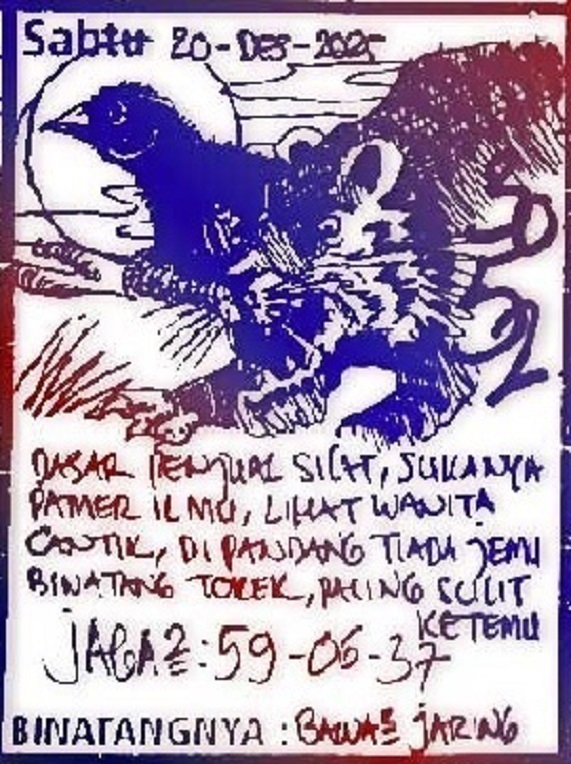 Sabtu 20-DES-2025
DASAR PENJUAL SILAT, SUKANYA
PAMER ILMU, LIHAT WANITA
CANTIK, DI PANDANG TIADA JEMU
BINATANG TOKEK, PALING SULIT
KETEMU
JAGA2:59-06-37
BINATANGNYA : BAWA2 JARING